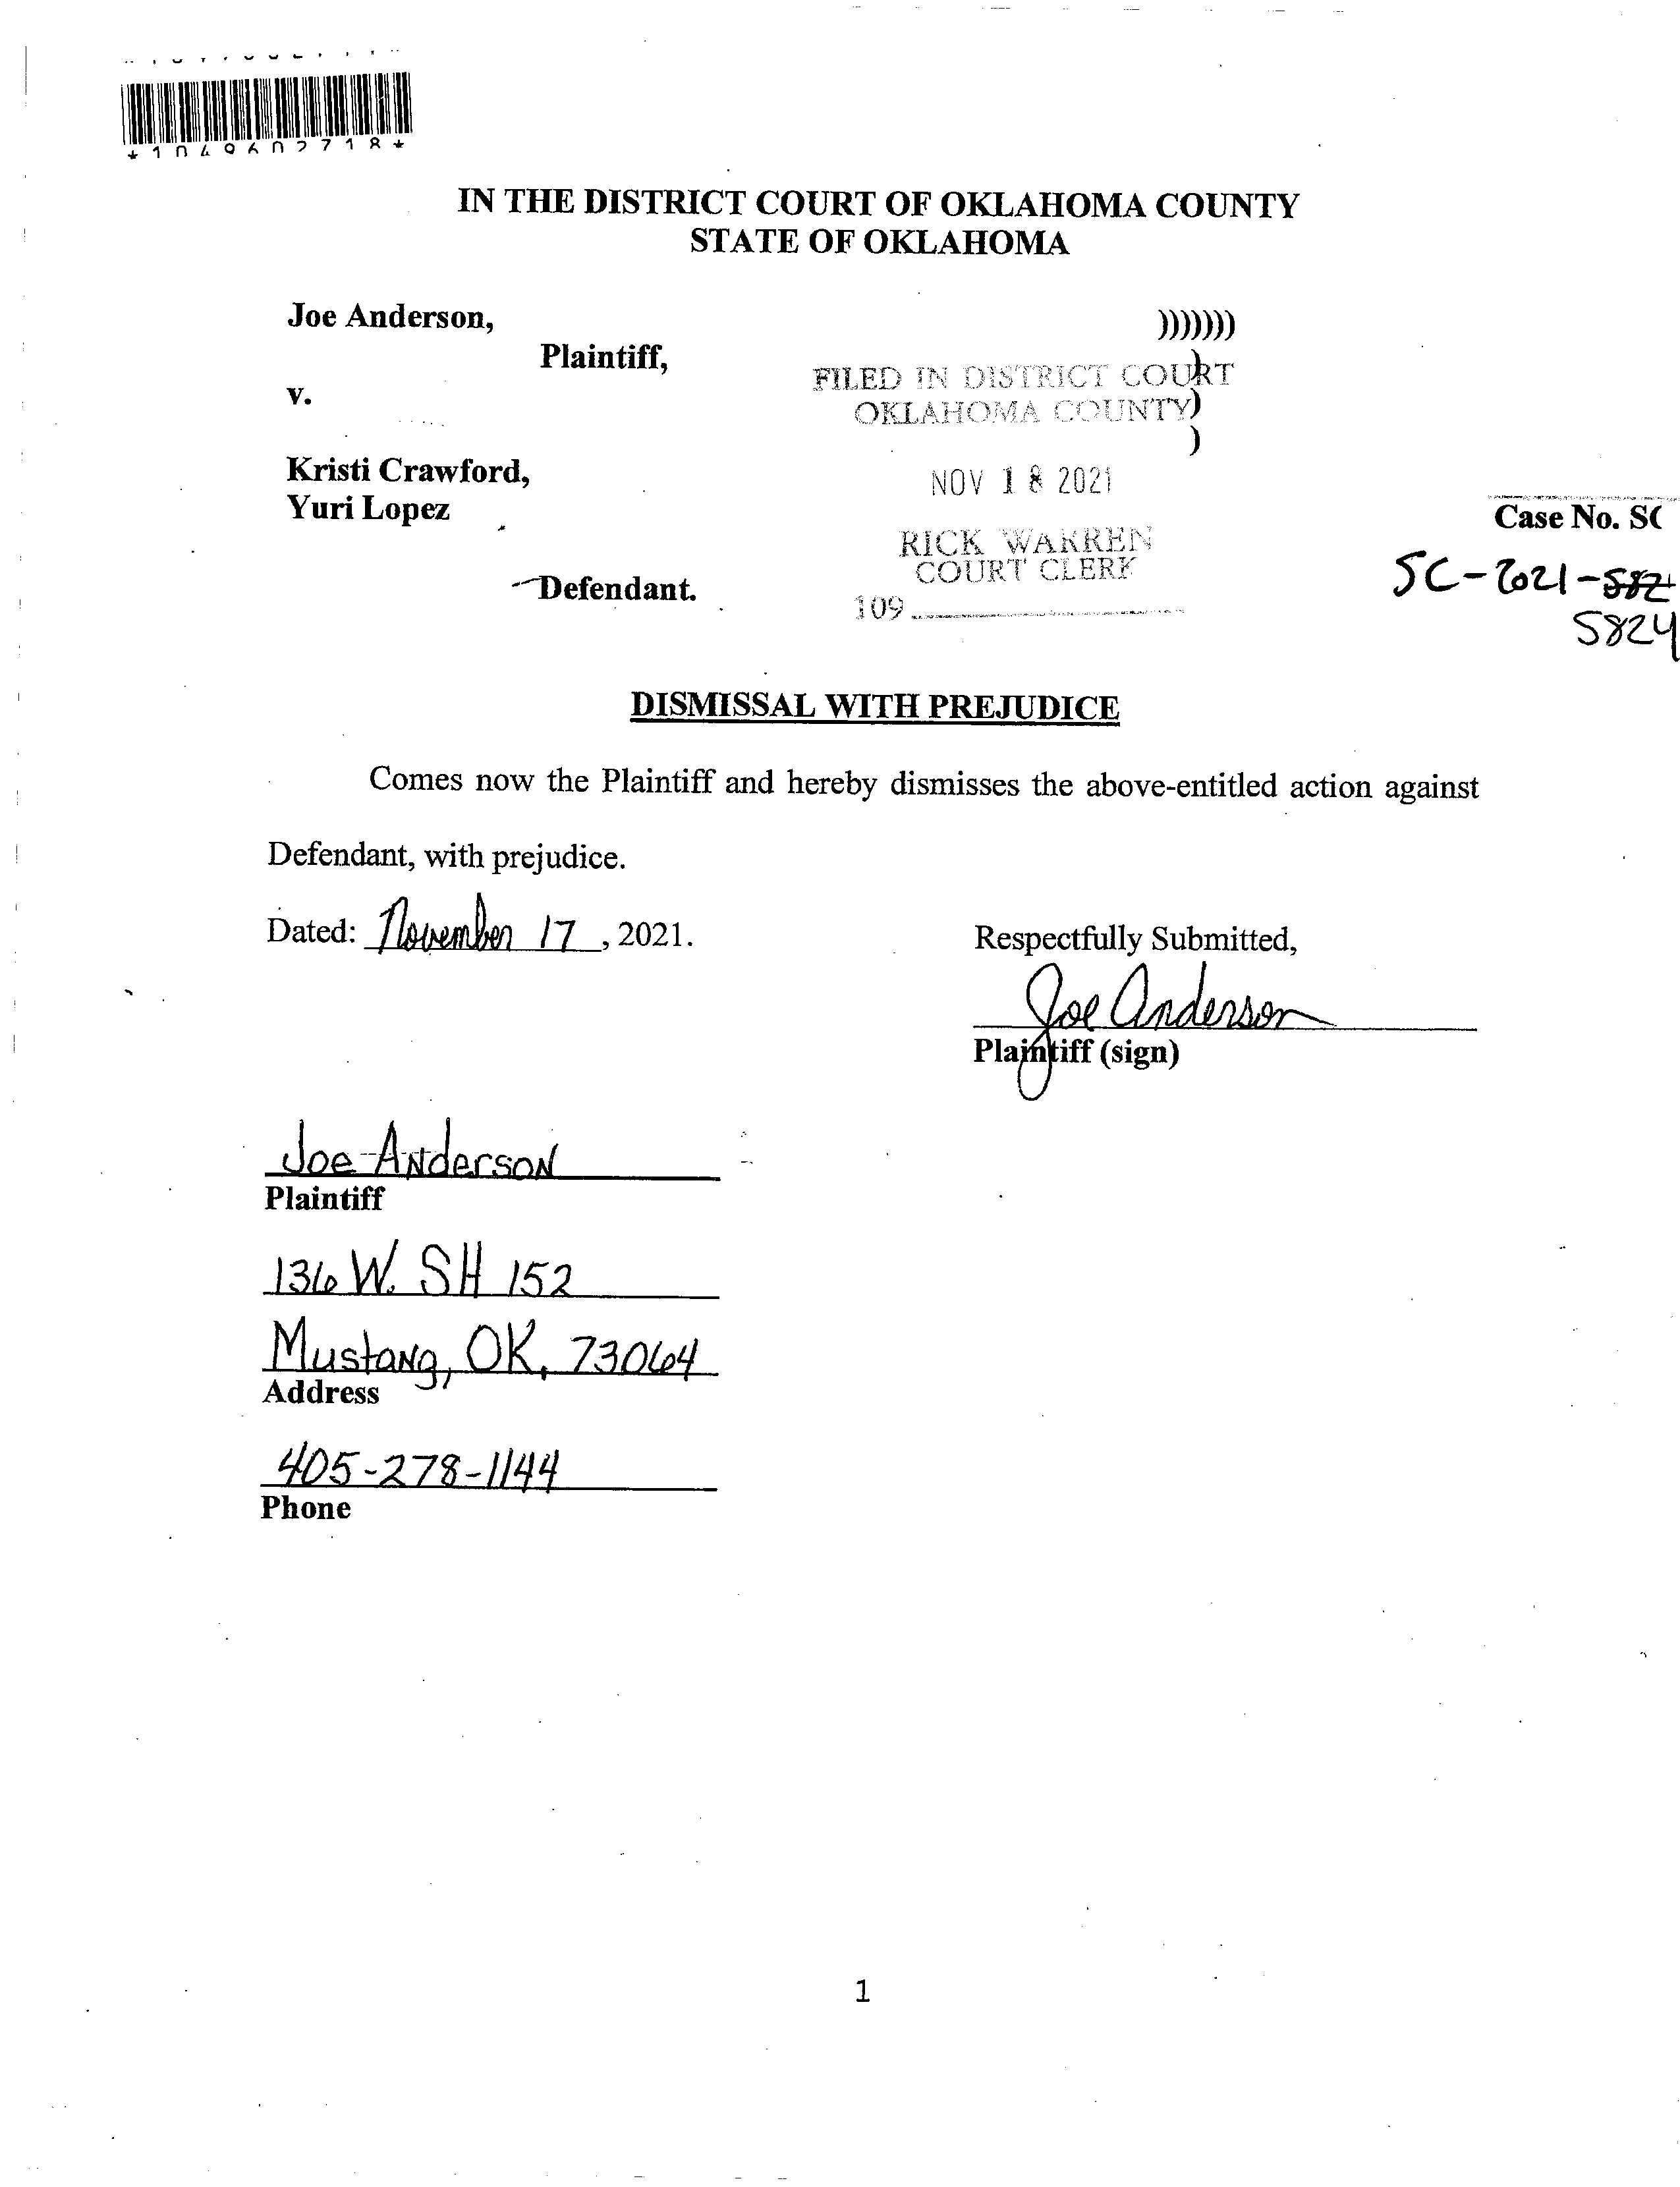 *1049602718*
IN THE DISTRICT COURT OF OKLAHOMA COUNTY
STATE OF OKLAHOMA
Joe Anderson,
)))))))
Plaintiff,
)
FILED IN DISTRICT COURT
v.
OKLAHOMA COUNTY
)
)
Kristi Crawford,
NOV 18 2021
Yuri Lopez
Case No. SC
RICK WARREN
COURT CLERK
SC-2021-582
Defendant.
109
5824
DISMISSAL WITH PREJUDICE
Comes now the Plaintiff and hereby dismisses the above-entitled action against
Defendant, with prejudice.
Dated: November 17, 2021.
Respectfully Submitted,
Joe Anderson
Plaintiff (sign)
Joe Anderson
Plaintiff
136 W. SH 152
Mustang, OK, 73064
Address
405-278-1144
Phone
1